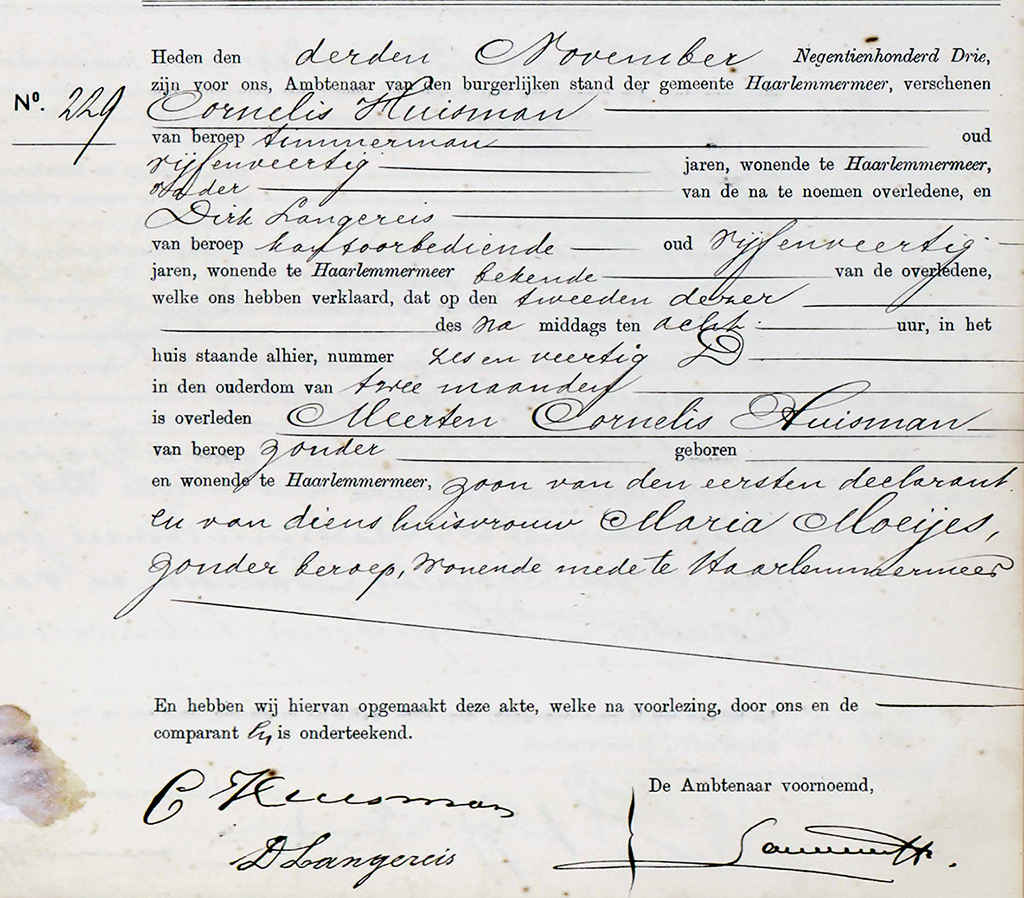 Heden den derden November Negentienhonderd Drie,
zijn voor ons, Ambtenaar van den burgerlijken stand der gemeente Haarlemmermeer, verschenen
Nº. 229 Cornelis Huisman
van beroep timmerman oud
vijfenveertig jaren, wonende te Haarlemmermeer,
vader van de na te noemen overledene, en
Dirk Langereis
van beroep kantoorbediende oud vijfenveertig
jaren, wonende te Haarlemmermeer bekende van de overledene,
welke ons hebben verklaard, dat op den tweeden dezer
des na middags ten acht uur, in het
huis staande alhier, nummer zes en veertig D
in den ouderdom van twee maanden
is overleden Meerten Cornelis Huisman
van beroep zonder geboren
en wonende te Haarlemmermeer, zoon van den eersten declarant
en van diens huisvrouw Maria Moeijes,
zonder beroep, wonende mede te Haarlemmermeer
En hebben wij hiervan opgemaakt deze akte, welke na voorlezing, door ons en de
comparanten is onderteekend.
De Ambtenaar voornoemd,
C Huisman
D Langereis